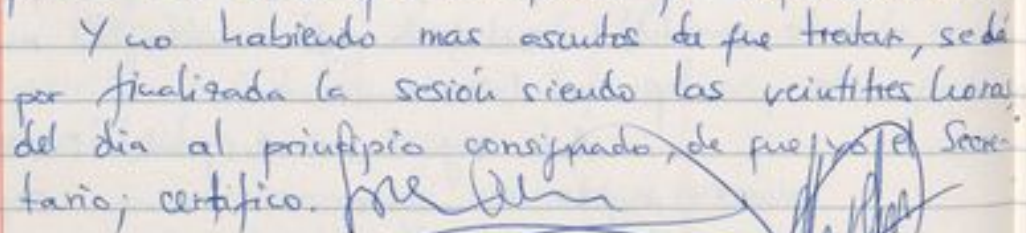 Y no habiendo mas asuntos de que tratar, se dá
por finalizada la sesión siendo las veintitres horas
del dia al principio consignado, de que yo el Secre-
tario; certifico.